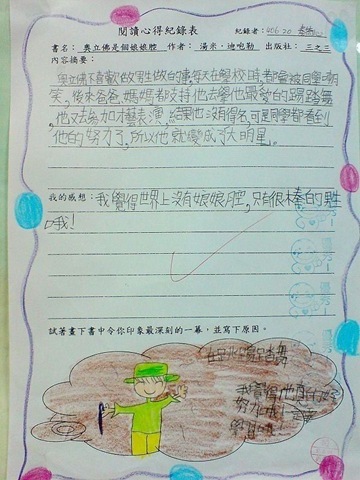 閱讀心得紀錄表 紀錄者：406-20
書名： 奧立佛是個娘娘腔 作者： 湯米．迪咆勒 出版社： 三之三
內容摘要：
奧立佛不喜歡做男生做的事,每天在學校時,都會被同學嘲
笑,後來爸爸、媽媽都支持他去學他最愛的踢踏舞
,他又去參加才藝表演,結果他沒有得名,可是同學都看到
他的努力了,所以他就變成了大明星。
我的感想：我覺得世界上沒有娘娘腔,只有很棒的男生
哦!
試著畫下書中令你印象最深刻的一幕，並寫下原因。
我覺得他真的好
努力哦!